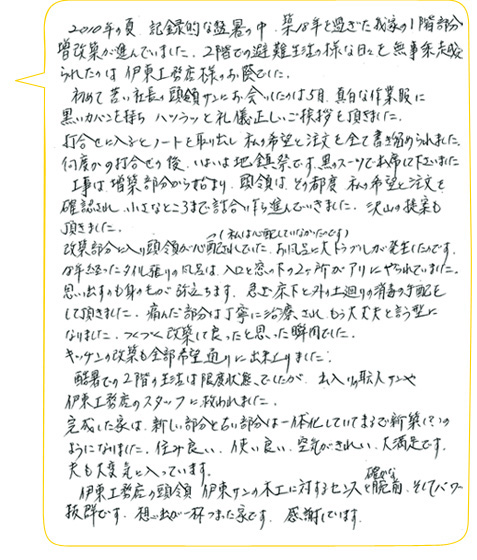 2010年の夏、記録的な猛暑の中、築18年を過ぎた我家の1階部分
増改築が進んでいました。2階での避難生活の様な日々を無事乗り越え
られたのは伊東工務店様のお陰でした。
初めて若い社長の頭領サンにお会いしたのは5月、真白な作業服に
黒いカバンを持ち ハツラツと礼儀正しいご挨拶を頂きました。
打合せに入るとノートを取り出し 私の希望と注文を全て書き留められました。
何度かの打合せの後、いよいよ地鎮祭です。黒のスーツで お越し下さいました
工事は増築部分から始まり、頭領は、その都度 私の希望と注文を
確認され、小さなところまで話合い乍ら進んでいきました。沢山の提案も
頂きました。
(私は心配していなかったのです)
改築部分に入り頭領が心配されていた、お風呂に大トラブルが発生したんです。
18年経ったタイル張りの風呂は、入口と窓の下の2ヶ所がアリにやられていました。
思い出すのも身のもが弥立ちます。急ぎ床下と外の土廻りの消毒の手配を
して頂きました。痛んだ部分は丁寧に治療され、もう大丈夫と言う型に
なりました。つくづく改築して良ったと思った瞬間でした。
キッチンの改築も全部希望通りに出来上りました。
酷暑での2階の生活は限度状態でしたが、出入りの職人サンや
伊東工務店のスタッフに救われました。
完成した家は、新しい部分と古い部分は一体化していてまるで新築(?)の
ようになりました。住み良い、使い良い、空気がきれい、大満足です。
夫も大変気に入っています。
伊東工務店の頭領 伊東サンの木工に対するセンスと確かな腕前、そしてパワー
抜群です。想い出が一杯つまった家です。感謝しています。